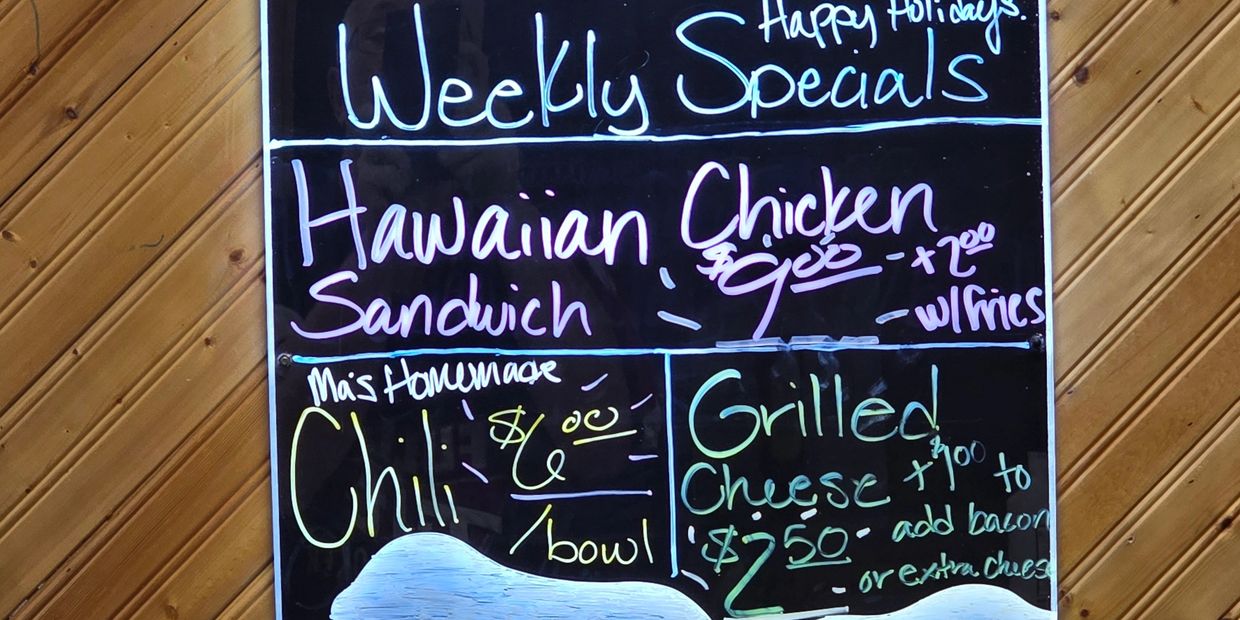 Happy Holidays.
Weekly Specials
Hawaiian Chicken
Sandwich $9.00 +2.00
w/fries
Ma's Homemade
Chili $6.00
/bowl
Grilled
Cheese +$1.00 to
$2.50 add bacon
or extra chees